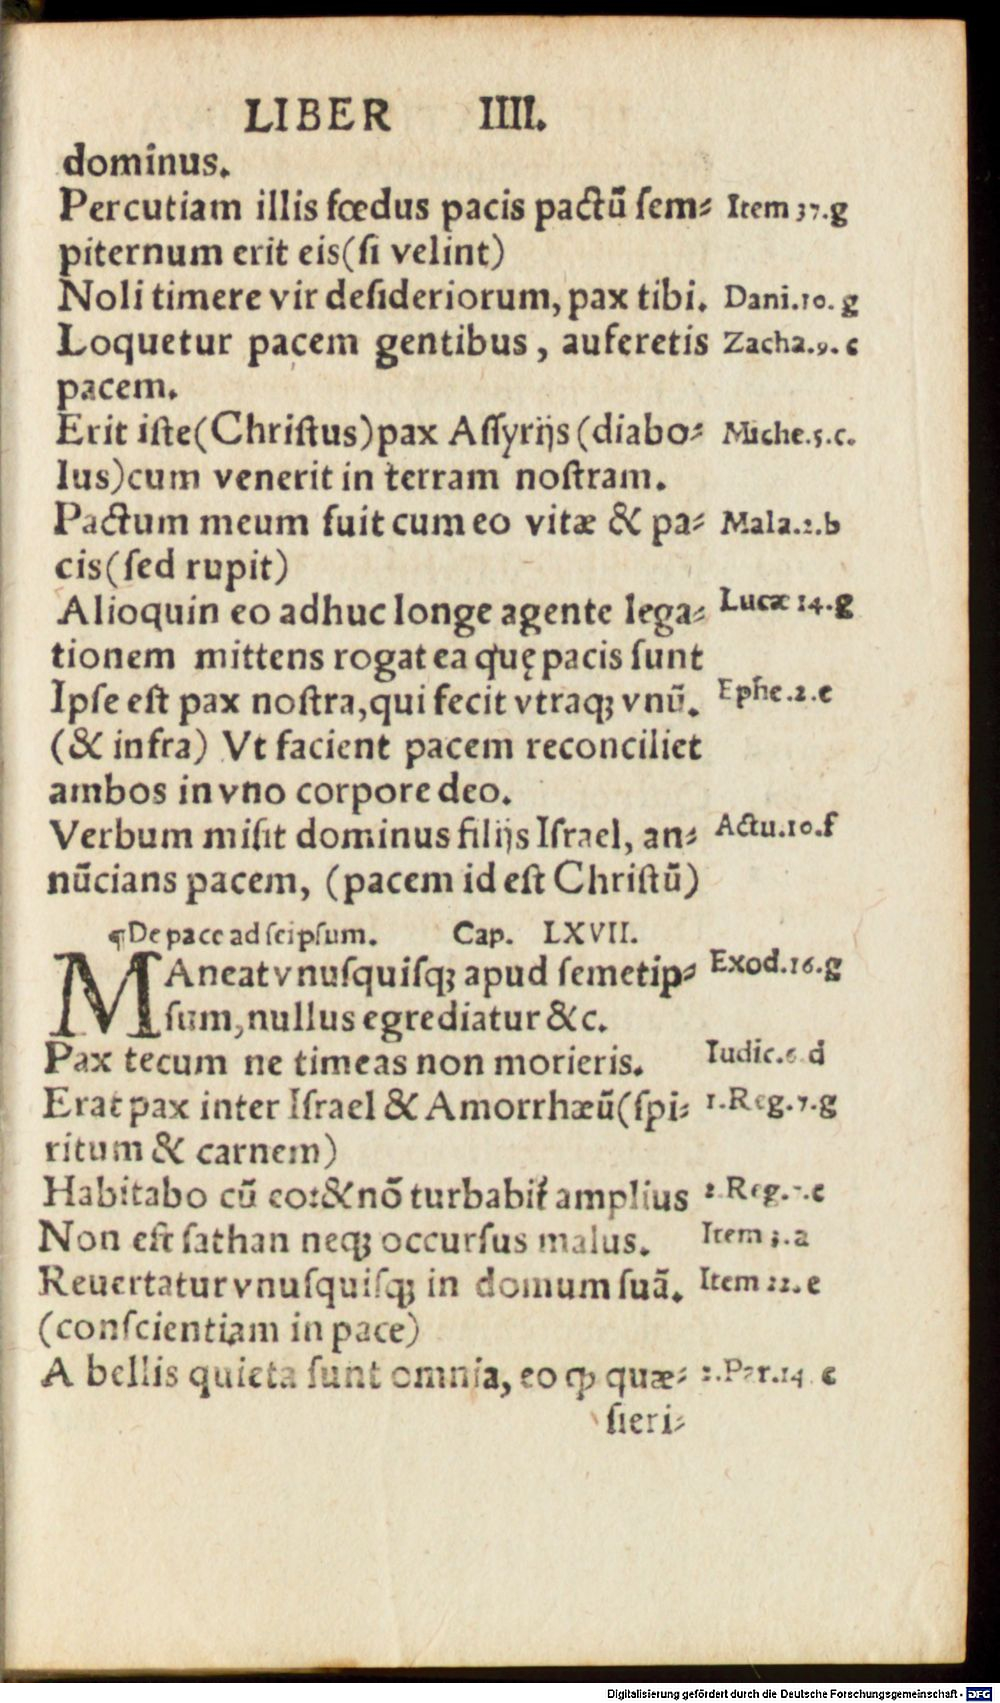 LIBER IIII.
dominus.
Percutiam illis fœdus pacis pactũ ſem⸗ Item 37.g
piternum erit eis(ſi velint)
Noli timere vir deſideriorum, pax tibi. Dani.10.g
Loquetur pacem gentibus, auferetis Zacha.9.c
pacem.
Erit iſte(Chriſtus)pax Aſſyrijs (diabo⸗ Miche.5.c.
lus)cum venerit in terram noſtram.
Pactum meum fuit cum eo vitæ & pa⸗ Mala.2.b
cis(ſed rupit)
Alioquin eo adhuc longe agente lega⸗ Lucæ 14.g
tionem mittens rogat ea quę pacis ſunt
Ipſe eſt pax noſtra,qui fecit vtraqꝫ vnũ. Ephe.2.e
(& infra) Vt facient pacem reconciliet
ambos in vno corpore deo.
Verbum miſit dominus filijs Iſrael, an⸗ Actu.10.f
nũcians pacem, (pacem id eſt Chriſtũ)
¶De pace ad ſeipſum. Cap. LXVII.
MAneat vnuſquiſqꝫ apud ſemetip⸗ Exod.16.g
ſum,nullus egrediatur &c.
Pax tecum ne timeas non morieris. Iudic.6 d
Erat pax inter Iſrael & Amorrhæũ(ſpi⸗ 1.Reg.7.g
ritum & carnem)
Habitabo cũ eo:&nõ turbabit̃ amplius 2.Reg.7.c
Non eſt ſathan neqꝫ occurſus malus. Item 5.a
Reuertatur vnuſquiſqꝫ in domum ſuã. Item 22.e
(conſcientiam in pace)
A bellis quieta ſunt omnia, eo ꝙ quæ⸗ 2.Par.14 c
ſieri⸗
Digitalisierung gefördert durch die Deutsche Forschungsgemeinschaft - DFG